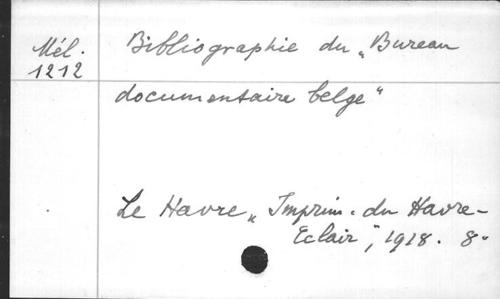 Mél.
1212
Bibliographie du „Bureau
documentaire belge"
Le Havre „Imprim. du Havre-
Eclair", 1918. 8°